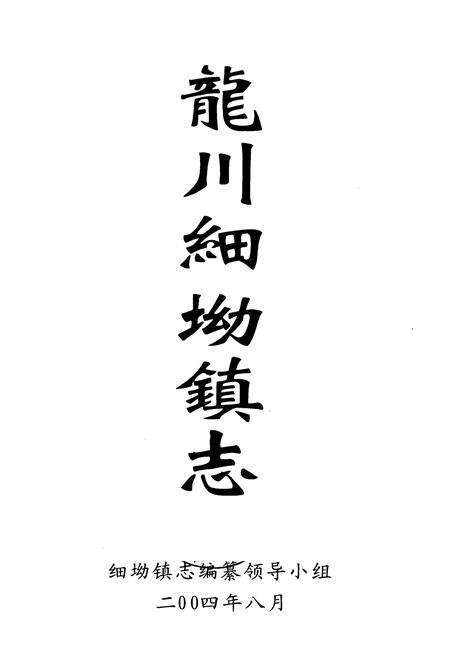 龍川細坳鎮志
细坳镇志编纂领导小组
二00四年八月